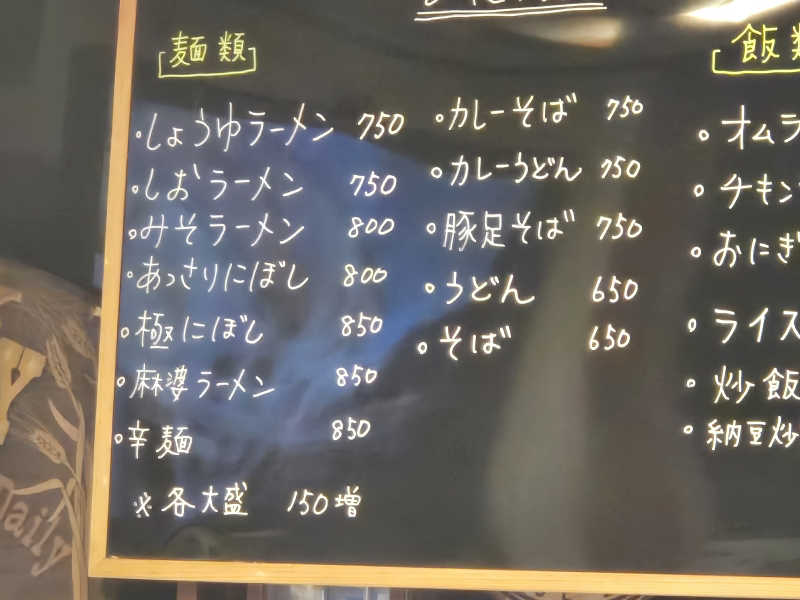 麺類
・しょうゆラーメン 750
・しおラーメン 750
・みそラーメン 800
・あっさりにぼし 800
・極にぼし 850
・麻婆ラーメン 850
・辛麺 850
※各大盛 150増
・カレーそば 750
・カレーうどん 750
・豚足そば 750
・うどん 650
・そば 650
飯類
・オムラ
・チキン
・おにぎ
・ライス
・炒飯
・納豆炒
Daily